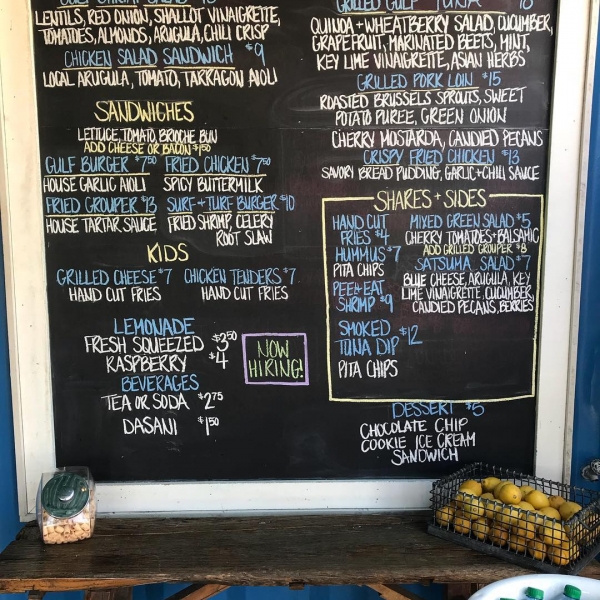 LENTILS, RED ONION, SHALLOT VINAIGRETTE,
TOMATOES, ALMONDS, ARUGULA, CHILI CRISP
CHICKEN SALAD SANDWICH $9
LOCAL ARUGULA, TOMATO, TARRAGON AIOLI
SANDWICHES
LETTUCE, TOMATO, BRIOCHE BUN
ADD CHEESE OR BACON $1.50
GULF BURGER $7.50
HOUSE GARLIC AIOLI
FRIED CHICKEN $7.50
SPICY BUTTERMILK
FRIED GROUPER $13
HOUSE TARTAR SAUCE
SURF + TURF BURGER $10
FRIED SHRIMP, CELERY
ROOT SLAW
KIDS
GRILLED CHEESE $7
HAND CUT FRIES
CHICKEN TENDERS $7
HAND CUT FRIES
LEMONADE
FRESH SQUEEZED $3.50
RASPBERRY $4
BEVERAGES
TEA OR SODA $2.75
DASANI $1.50
NOW
HIRING!
GRILLED GULF TUNA
QUINOA + WHEATBERRY SALAD, CUCUMBER,
GRAPEFRUIT, MARINATED BEETS, MINT,
KEY LIME VINAIGRETTE, ASIAN HERBS
GRILLED PORK LOIN $15
ROASTED BRUSSELS SPROUTS, SWEET
POTATO PUREE, GREEN ONION
CHERRY MOSTARDA, CANDIED PECANS
CRISPY FRIED CHICKEN $13
SAVORY BREAD PUDDING, GARLIC + CHILI SAUCE
SHARES + SIDES
HAND CUT
FRIES $4
HUMMUS $7
PITA CHIPS
PEEL + EAT
SHRIMP $9
SMOKED
TUNA DIP $12
PITA CHIPS
MIXED GREEN SALAD $5
CHERRY TOMATOES + BALSAMIC
ADD GRILLED GROUPER $8
SATSUMA SALAD $7
BLUE CHEESE, ARUGULA, KEY
LIME VINAIGRETTE, CUCUMBER,
CANDIED PECANS, BERRIES
DESSERT $5
CHOCOLATE CHIP
COOKIE ICE CREAM
SANDWICH